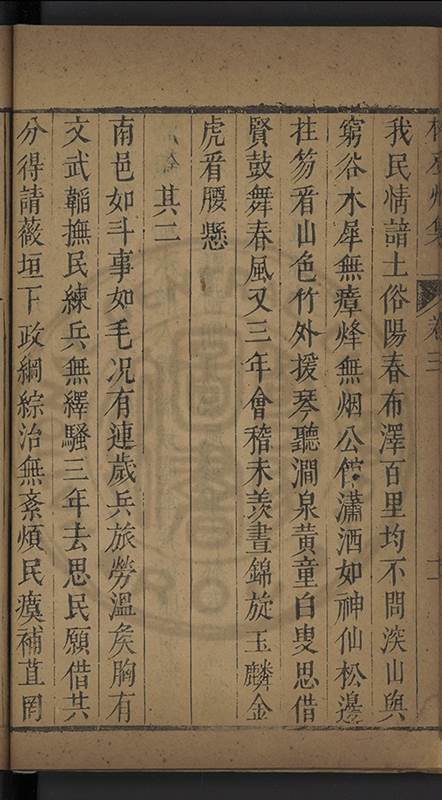 我民情諳土俗陽春布澤百里均不問深山與
窮谷木犀無瘴烽無烟公倅瀟洒如神仙松邊
拄笏看山色竹外援琴聽澗泉黃童白叟思借
賢鼓舞春風又三年會稽未羨晝錦旋玉麟金
虎看腰懸
其二
南邑如斗事如毛况有連歲兵旅勞溫矦胸有
文武韜撫民練兵無繹騷三年去思民願借其
分得請薇垣下政綱綜治無紊煩民瘼補苴罔